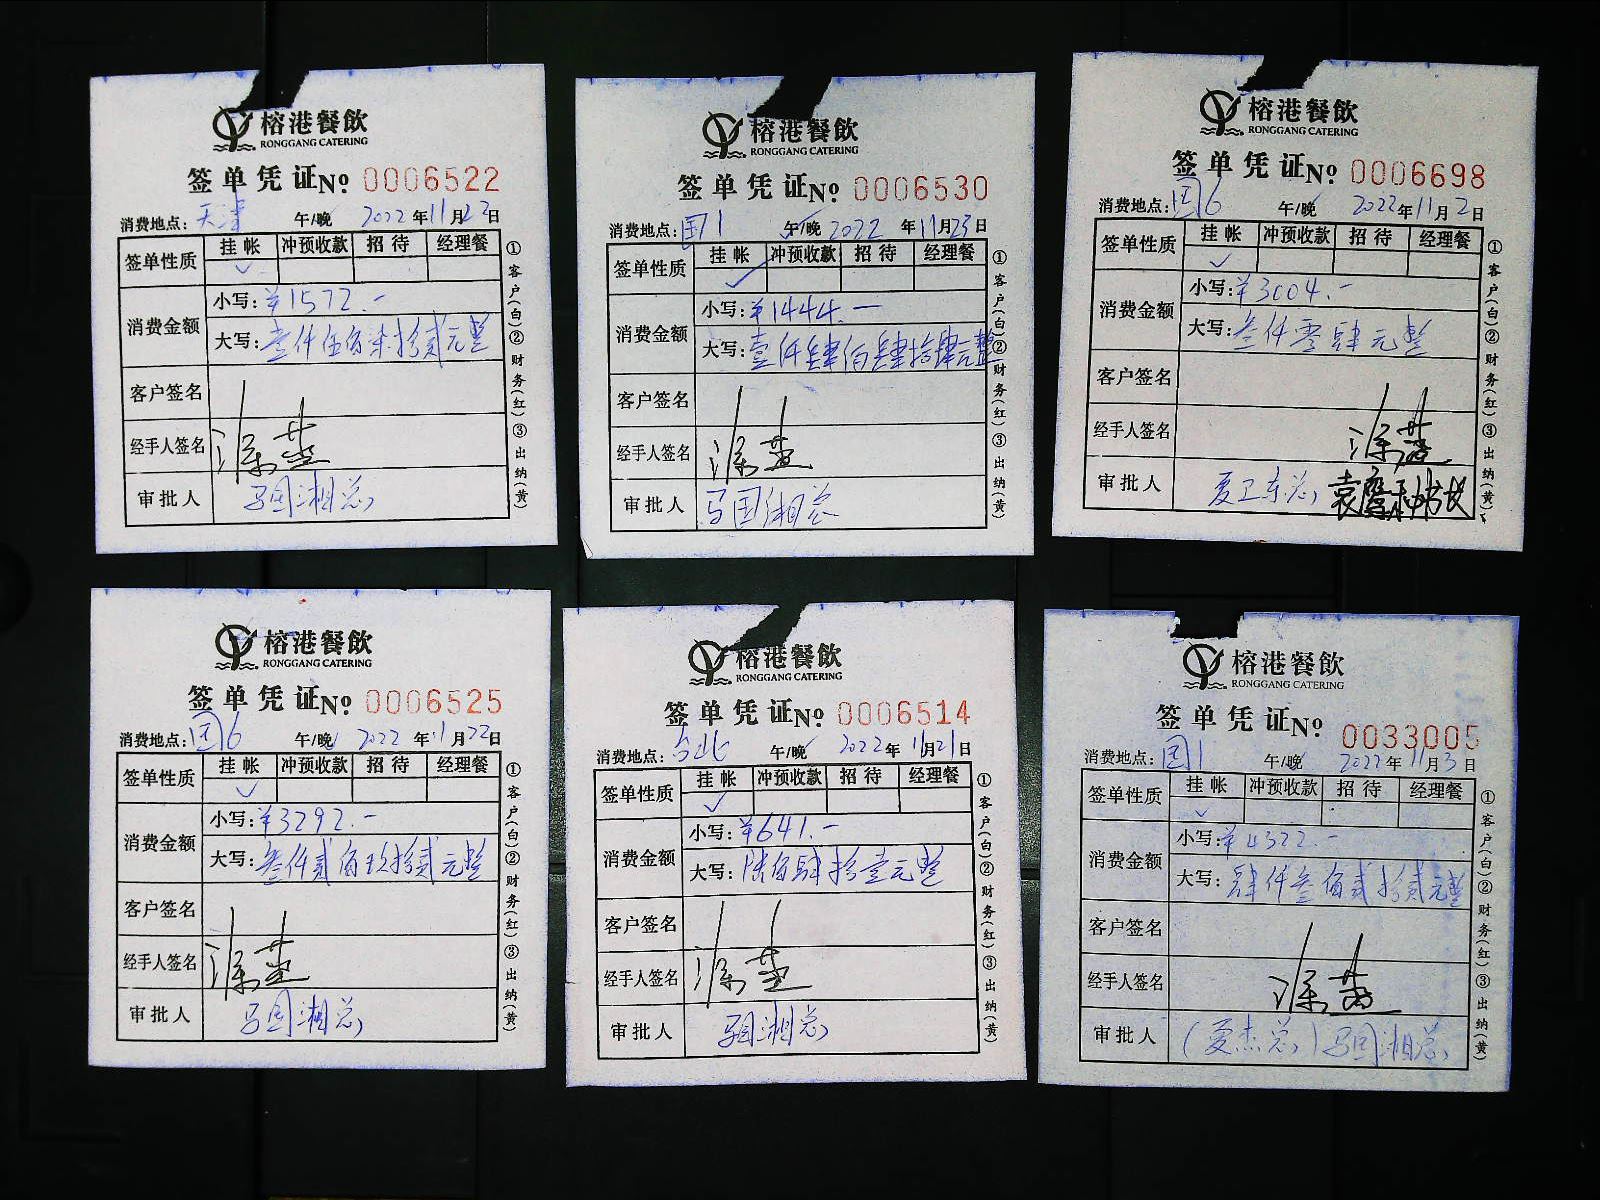 榕港餐飲
RONGGANG CATERING
签单凭证№ 0006522
消费地点：天津 午/晚 2022年11月22日
签单性质 挂帐 冲预收款 招待 经理餐
✓
消费金额 小写：¥1572.-
大写：壹仟伍佰柒拾贰元整
客户签名
经手人签名 涂
审批人 马国湘总
①客户（白）②财务（红）③出纳（黄）
榕港餐飲
RONGGANG CATERING
签单凭证№ 0006530
消费地点：国1 午/晚 2022年11月23日
签单性质 挂帐 冲预收款 招待 经理餐
✓
消费金额 小写：¥1444.-
大写：壹仟肆佰肆拾肆元整
客户签名
经手人签名 涂
审批人 马国湘总
①客户（白）②财务（红）③出纳（黄）
榕港餐飲
RONGGANG CATERING
签单凭证№ 0006698
消费地点：国6 午/晚 2022年11月2日
签单性质 挂帐 冲预收款 招待 经理餐
✓
消费金额 小写：¥3004.-
大写：叁仟零肆元整
客户签名
经手人签名 涂
审批人 夏卫东总 袁鹰秘书长
①客户（白）②财务（红）③出纳（黄）
榕港餐飲
RONGGANG CATERING
签单凭证№ 0006525
消费地点：国6 午/晚 2022年11月22日
签单性质 挂帐 冲预收款 招待 经理餐
✓
消费金额 小写：¥3292.-
大写：叁仟贰佰玖拾贰元整
客户签名
经手人签名 涂
审批人 马国湘总
①客户（白）②财务（红）③出纳（黄）
榕港餐飲
RONGGANG CATERING
签单凭证№ 0006514
消费地点：台北 午/晚 2022年11月21日
签单性质 挂帐 冲预收款 招待 经理餐
✓
消费金额 小写：¥641.-
大写：陆佰肆拾壹元整
客户签名
经手人签名 涂
审批人 马国湘总
①客户（白）②财务（红）③出纳（黄）
榕港餐飲
RONGGANG CATERING
签单凭证№ 0033005
消费地点：国1 午/晚 2022年11月3日
签单性质 挂帐 冲预收款 招待 经理餐
✓
消费金额 小写：¥4322.-
大写：肆仟叁佰贰拾贰元整
客户签名
经手人签名 涂
审批人 （夏杰总）马国湘总
①客户（白）②财务（红）③出纳（黄）